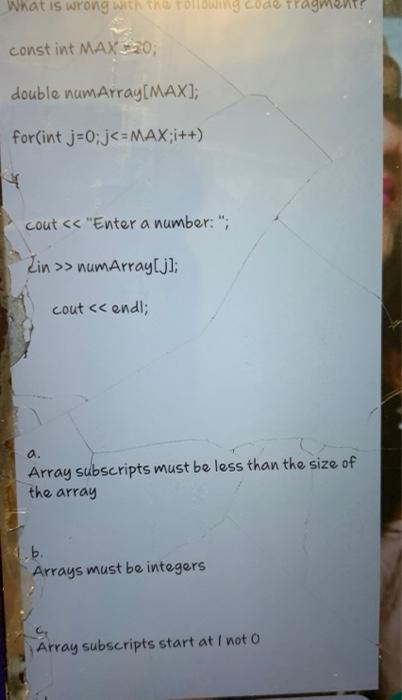 What is wrong with the following code fragment?
const int MAX =20;
double numArray[MAX];
for(int j=0;j<=MAX;i++)
{
cout << "Enter a number: ";
cin >> numArray[j];
cout << endl;
a.
Array subscripts must be less than the size of
the array
b.
Arrays must be integers
c.
Array subscripts start at 1 not 0